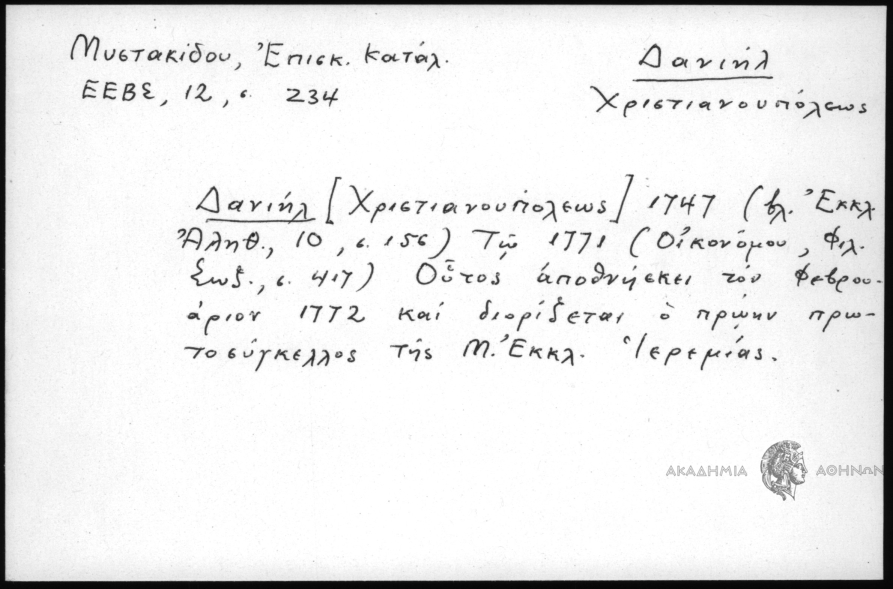 Μυστακίδου, Ἐπισκ. Κατάλ.
ΕΕΒΣ, 12, σ. 234
Δανιήλ
Χριστιανουπόλεως
Δανιήλ [Χριστιανουπόλεως] 1747 (βλ. Ἐκκλ.
Ἀληθ., 10, σ. 156) Τῷ 1771 (Οἰκονόμου, Φιλ.
Σωζ., σ. 417) Οὗτος ἀποθνήσκει τόν Φεβρου-
άριον 1772 καί διορίζεται ὁ πρώην πρω-
τοσύγκελλος τῆς Μ. Ἐκκλ. Ἱερεμίας.
ΑΚΑΔΗΜΙΑ ΑΘΗΝΩΝ